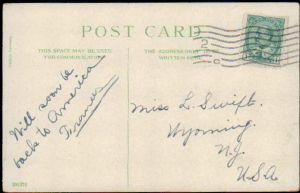 POST CARD
THIS SPACE MAY BE USED
FOR COMMUNICATION
THE ADDRESS ONLY
WRITTEN HERE
Will soon be
back to America
Miss L. Swift.
Wyoming
N.Y.
U.S.A